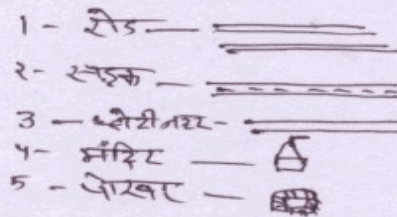 1 - रोड
२ - सड़क
3 - छोटी नहर
४ - मंदिर
5 - पोखर